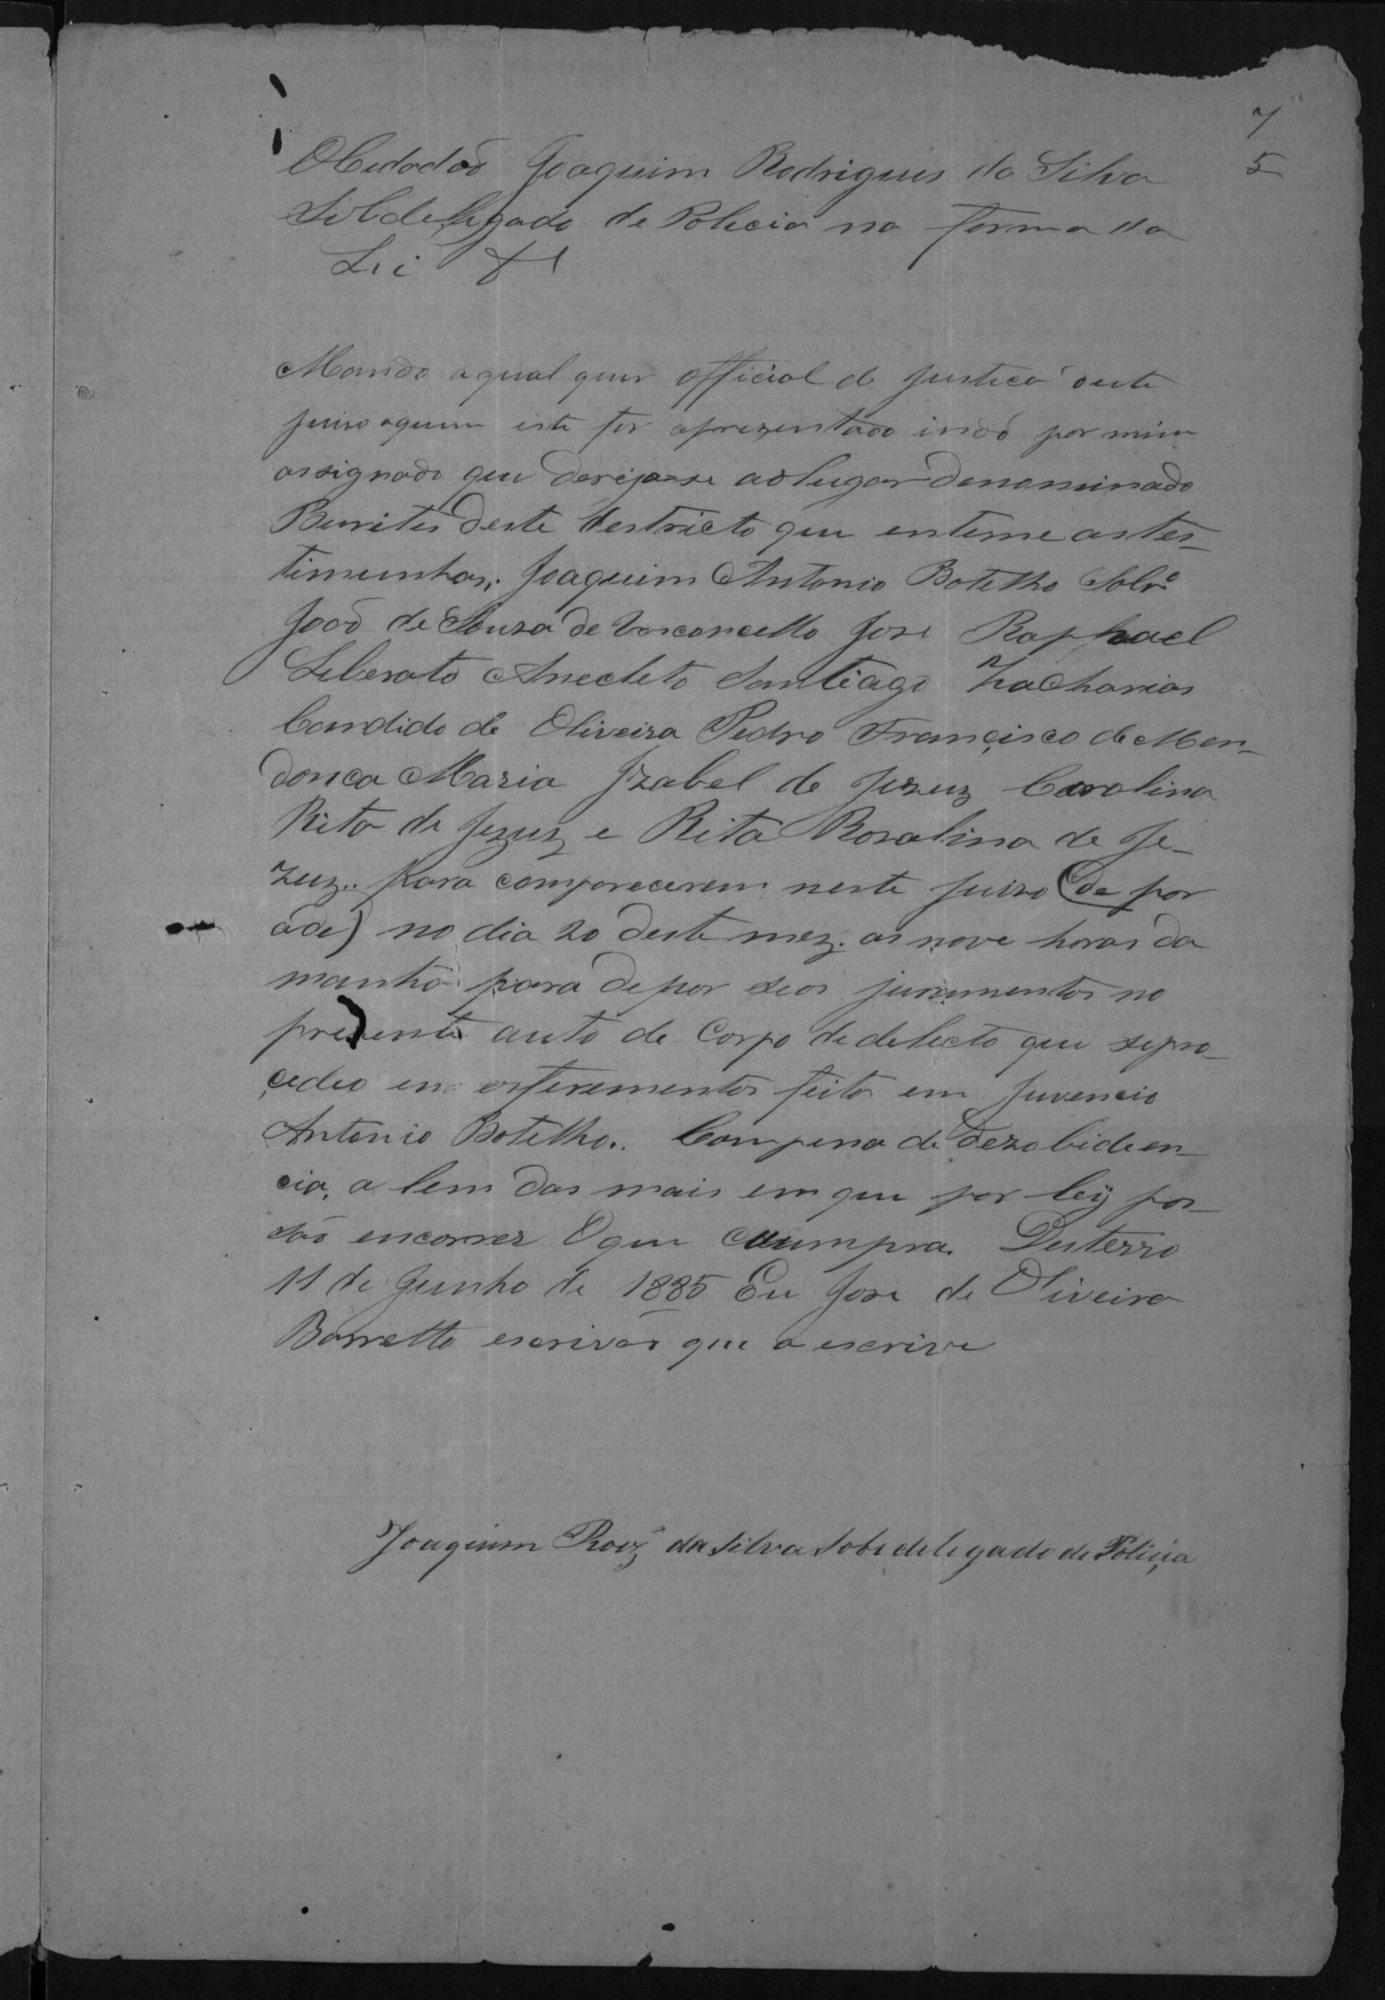 7
5
O Cidadaõ Joaquim Rodrigues da Silva
Subdelegado de Policia na forma da
Lei &
Mando aqual quer official de justiça deste
juizo aquem este for aprezentado indo por mim
assignado que derija-se ao lugar denominado
Burites deste destricto que enteme as tes-
timunhas; Joaquim Antonio Botelho Sobr.o
Joaõ de Souza de Vasconcello Joze Raphael
Liberato Anecleto Santiago Zacharias
Candido de Oliveira Pedro Françisco de Men-
donca Maria Izabel de Jezuz Carolina
Rita de Jezuz e Rita Rosalina de Je-
zuz.. para comparecerem neste juizo (de por
ade) no dia 20 deste mez. as nove horas da
manhã para depor seos juramentos no
prezente auto de Corpo de delicto que sepro-
çedeo en os ferementos feito em Juvencio
Antonio Botelho.. Com pena de dezobidien-
cia, a lem das mais em que por leij pos-
saõ encorrer O que cumpra. Desterro
11 de Junho de 1885 Eu Joze de Oliveira
Barretto escrivaõ que o escrive
Joaquim Roiz da Silva Sobidelegado de Poliçia